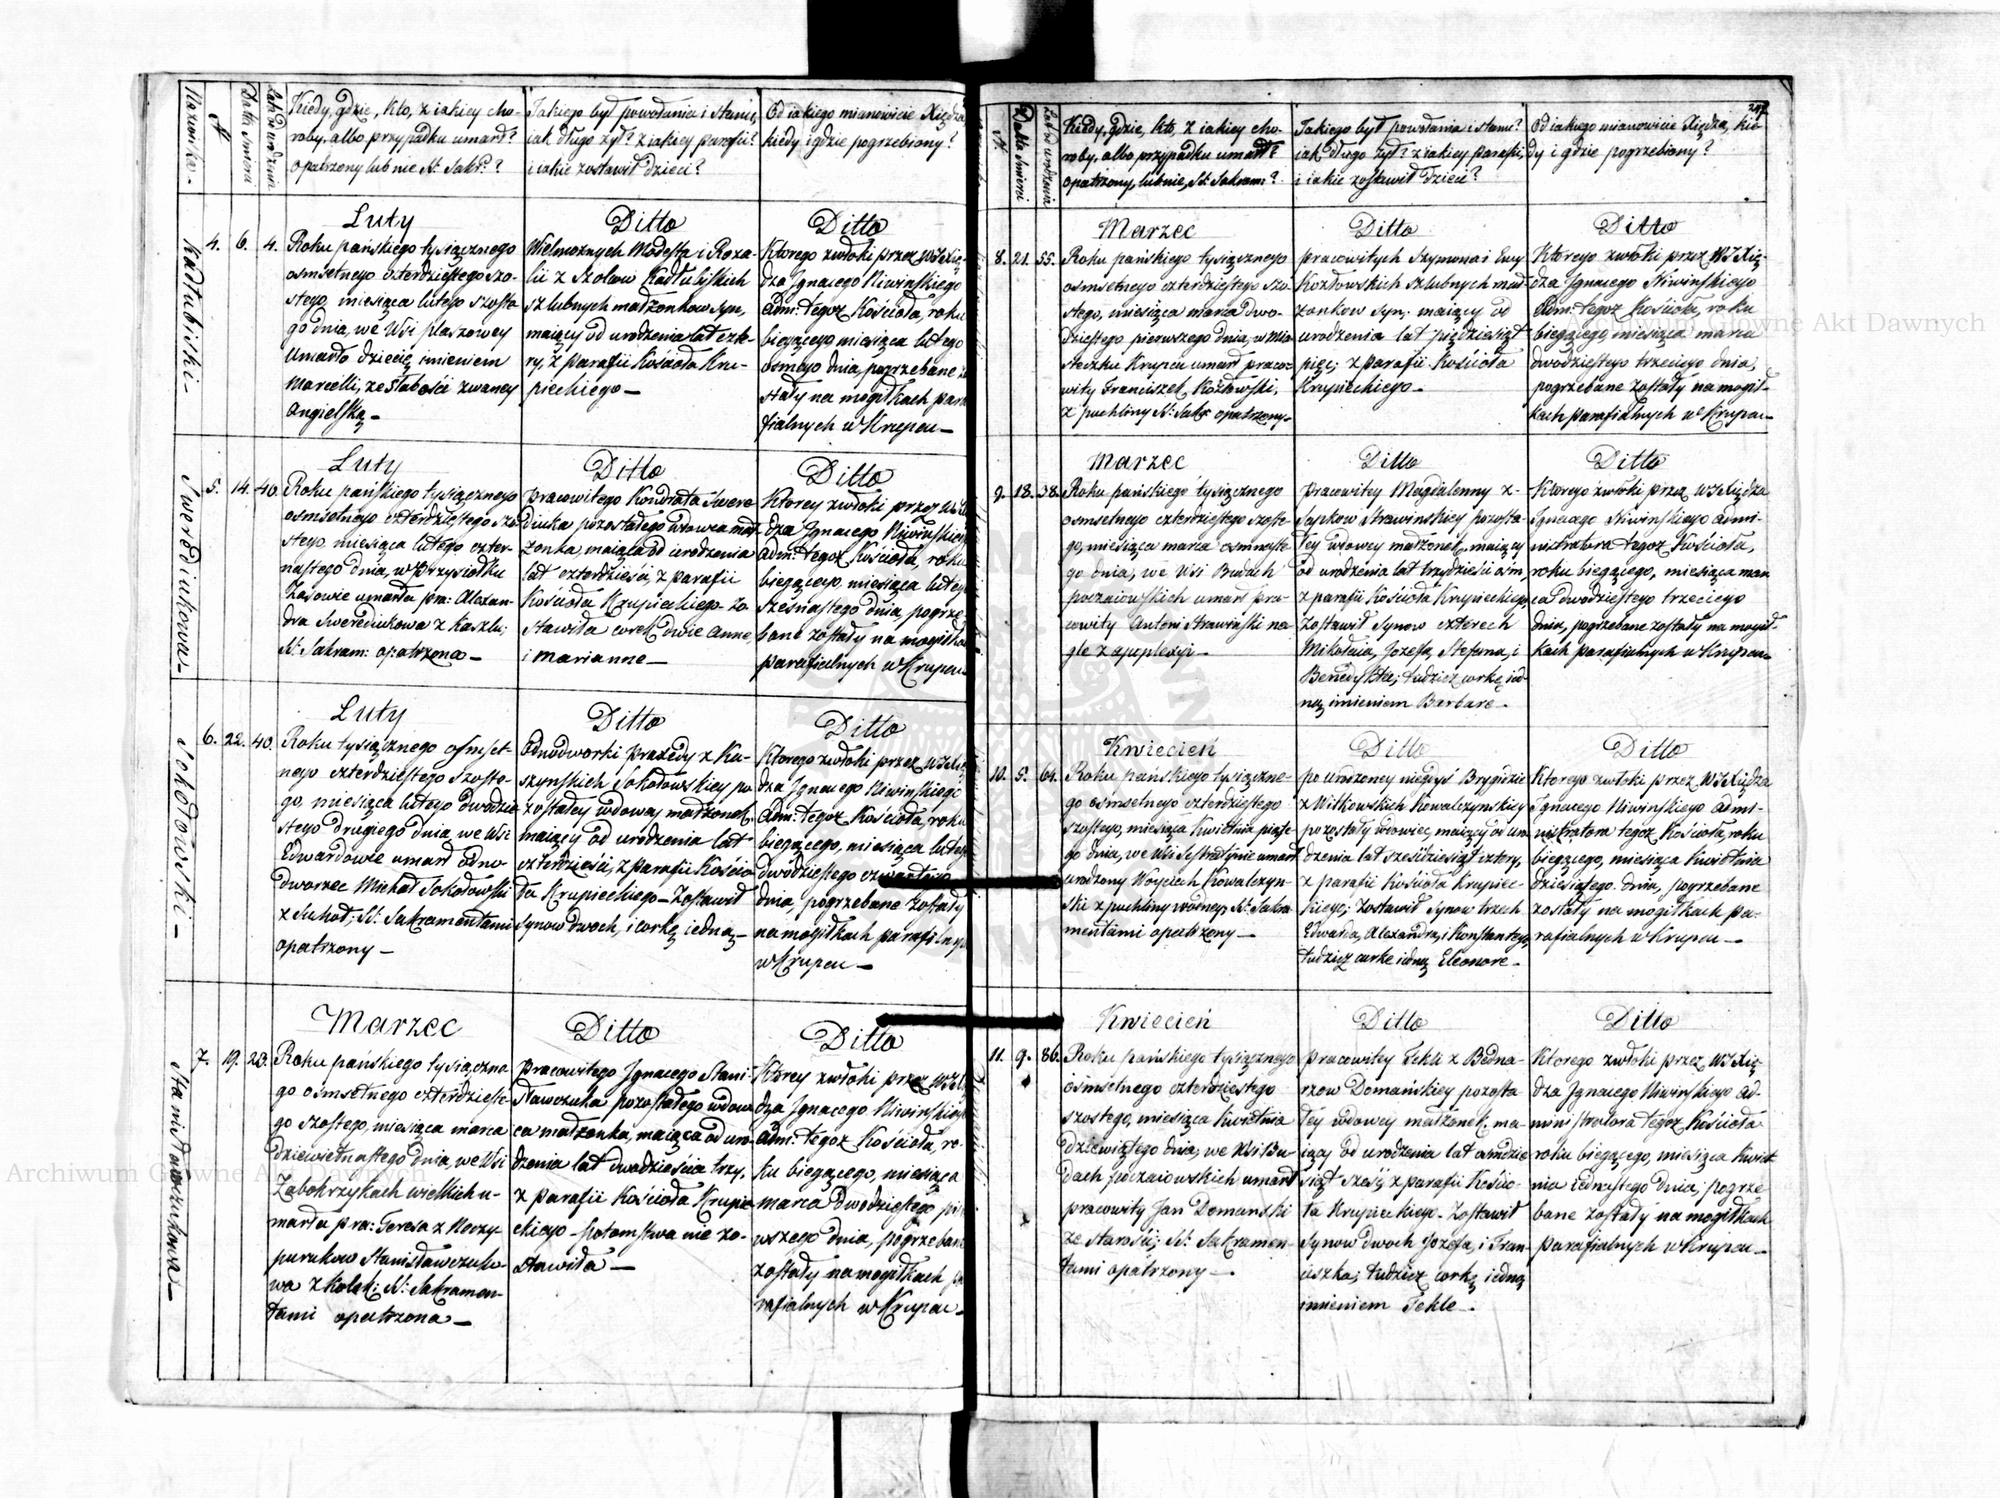 Nazwisko.
N
Data Śmierci
Lat od urodzenia
Kiedy, gdzie, kto, z iakiey cho-
roby, albo przypadku umarł?
opatrzony lub nie SS. Sakr:?
Jakiego był powołania i stanu,
iak długo żył? z iakiey parafii?
i iakie zostawił dzieci?
Od iakiego mianowicie Xiędza
kiedy i gdzie pogrzebiony?
Kadłubiski
4. 6. 4.
Luty
Roku pańskiego tysiącznego
osmsetnego czterdziestego szo-
stego, miesiąca lutego szoste-
go dnia, we Wsi płaszowey
umarło dziecię imieniem
Marcelli, ze słabości zwaney
Angielską
Ditto
Wielmożnych Modesta i Roza-
lii z Szołow Kadłubiskich
szlubnych małżonkow syn,
maiący od urodzenia lat czte-
ry, z parafii Kościoła Kru-
pieckiego
Ditto
Ktorego zwłoki przez WJXię-
dza Jgnacego Niwinskiego
Adm: tegoż Kościoła, roku
biegącego miesiąca lutego
osmego dnia, pogrzebane zo
stały na mogiłkach para
fialnych w Krupcu
Swerediukowa
5. 14. 40.
Luty
Roku pańskiego tysiącznego
osmsetnego czterdziestego szo-
stego miesiąca lutego czter-
nastego dnia, w Przysiołku
Zasowie umarła pra: Alexan-
dra Swerediukowa z Kaszlu;
SS. Sakram: opatrzona
Ditto
pracowitego Kondrata Swere
diuka pozostałego wdowca mał-
żonka, maiąca od urodzenia
lat czterdzieści, z parafii
Kościoła Krupieckiego zo-
stawiła corek dwie Annę,
i Mariannę
Ditto
Ktorey zwłoki przez WJXi
dza Jgnacego Niwinskiego
Adm: tegoż Kościoła, roku
biegącego, miesiąca lutego
szesnastego dnia, pogrze
bane zostały na mogiłkac
parafialnych w Krupcu
Sokołowski
6. 22. 40.
Luty
Roku tysiącznego osmset-
nego czterdziestego szoste-
go, miesiąca lutego dwudzie
stego drugiego dnia, we Wsi
Edwardowie umarł odno-
dworzec Michał Sokołowski
z Suchot; SS. Sakramentami
opatrzony
Ditto
Odnodworki Praxedy z Ka-
szynskich Sokołowskiey po
zostałey wdowy małżonek
maiący od urodzenia lat
czterdzieści, z parafii Kościo
ła Krupieckiego Zostawił
Synow dwoch, i corkę iedną
Ditto
Ktorego zwłoki przez WJXię
dza Jgnacego Niwinskiego
Adm: tegoż Kościoła, roku
biegącego, miesiąca lutego
dwódziestego czwartego
dnia, pogrzebane zostały
na mogiłkach parafialnych
w Krupcu
Stanisławczukowa
7. 19. 23.
Marzec
Roku pańskiego tysiączne
go osmsetnego czterdzieste-
go szostego, miesiąca marca
dziewietnastego dnia, we Wsi
Zabokrzykach wielkich u-
marła pra: Teresa z Neczy-
porukow Stanisławczuko-
wa z Kolek; SS. Sakramen-
tami opatrzona
Ditto
Pracowitego Jgnacego Stani-
sławczuka pozostałego wdow
ca małżonka, maiąca od uro-
dzenia lat dwadzieścia trzy,
z parafii Kościoła Krupie-
ckiego potomstwa nie zo-
stawiła
Ditto
Ktorey zwłoki przez WJXi
dza Jgnacego Niwinskiego
Adm: tegoż Kościoła, ro-
ku biegącego, miesiąca
marca dwódziestego pir
wszego dnia, pogrzebane
zostały na mogiłkach pa
rafialnych w Krupcu
N.
Data Śmierci
Lat od urodzenia
Kiedy, gdzie, kto, z iakiey cho-
roby, albo przypadku umarł?
opatrzony, lub nie, SS. Sakram:?
Jakiego był powołania i stanu?
iak długo żył? z iakiey parafii,
i iakie zostawił dzieci?
Od iakiego mianowicie Xiędza, kie
dy i gdzie pogrzebiony?
8. 21. 55.
Marzec
Roku pańskiego tysiącznego
osmsetnego czterdziestego szo-
stego, miesiąca marca dwo-
dziestego pierwszego dnia, w Mia
steczku Krupcu umarł praco-
wity Franciszek Kozłowski,
z puchliny SS. Sakr: opatrzony
Ditto
pracowitych Szymona i Ewy
Kozłowskich szlubnych mał-
żonkow syn; maiący od
urodzenia lat pięćdziesiąt
pięć; z parafii Kościoła
Krupieckiego
Ditto
Ktorego zwłoki przez WJXię-
dza Jgnacego Niwinskiego
Adm: tegoż Kościoła, roku
biegącego, miesiąca marca
dwódziestego trzeciego dnia,
pogrzebane zostały na mogił-
kach parafialnych w Krupcu
9. 18. 38.
Marzec
Roku pańskiego tysiącznego
osmsetnego czterdziestego szoste-
go, miesiąca marca osmnaste
go dnia, we Wsi Budach
poczaiowskich umarł pra-
cowity Antoni Strawiński na-
gle z apoplexyi
Ditto
pracowitey Magdalenny z
Sapkow Strawinskiey pozosta-
łey wdowey małżonek, maiący
od urodzenia lat trzydzieści ośm,
z parafii Kościoła Krupieckiego,
Zostawił Synow czterech
Mikołaia, Jozefa, Stefana, i
Benedykta; tudzież corkę ied-
ną imieniem Barbarę
Ditto
Ktorego zwłoki przez WJXiędza
Jgnacego Niwinskiego Admi-
nistratora tegoż Kościoła,
roku biegącego, miesiąca mar
ca dwodziestego trzeciego
dnia, pogrzebane zostały na mogił-
kach parafialnych w Krupcu
10. 5. 64.
Kwiecień
Roku pańskiego tysiączne-
go osmsetnego czterdziestego
szostego, miesiąca Kwietnia piąte-
go dnia, we Wsi Sestratynie umarł
urodzony Woyciech Kowalczyn-
ski z puchliny wodney, SS. Sakra
mentami opatrzony
Ditto
po Urodzoney niegdyś Brygidzie
z Witkowskich Kowalczynskiey
pozostały wdowiec, maiący od uro
dzenia lat sześćdziesiąt cztery,
z parafii Kościoła Krupiec-
kiego; Zostawił Synow trzech
Edwarda, Alexandra, i Konstantego,
tudzież curkę iedną Eleonorę
Ditto
Ktorego zwłoki przez WJXiędza
Jgnacego Niwinskiego Admi-
nistratora tegoż Kościoła, roku
biegącego, miesiąca Kwietnia
dziesiątego dnia, pogrzebane
zostały na mogiłkach pa-
rafialnych w Krupcu
11. 9. 86.
Kwiecień
Roku pańskiego tysiącznego
osmsetnego czterdziestego
szostego, miesiąca Kwietnia
dziewiątego dnia, we Wsi Bu-
dach poczaiowskich umarł
pracowity Jan Domanski
ze starości; SS. Sakramen-
tami opatrzony
Ditto
Pracowitey Tekli z Bedna-
rzow Domańskiey pozosta
łey wdowey małżonek, ma-
iący od urodzenia lat osmdzie
siąt sześć, z parafii Kościo-
ła Krupieckiego. Zostawił
Synow dwoch Jozefa, i Fran-
ciszka; tudzież corkę iedną
imieniem Teklę
Ditto
Ktorego zwłoki przez WJXię-
dza Jgnacego Niwinskiego Ad-
ministratora tegoż Kościoła
roku biegącego, miesiąca Kwiet
nia iednastego dnia, pogrze
bane zostały na mogiłkach
parafialnych w Krupcu
Archiwum Główne Akt Dawnych
Archiwum Główne Akt Dawnych